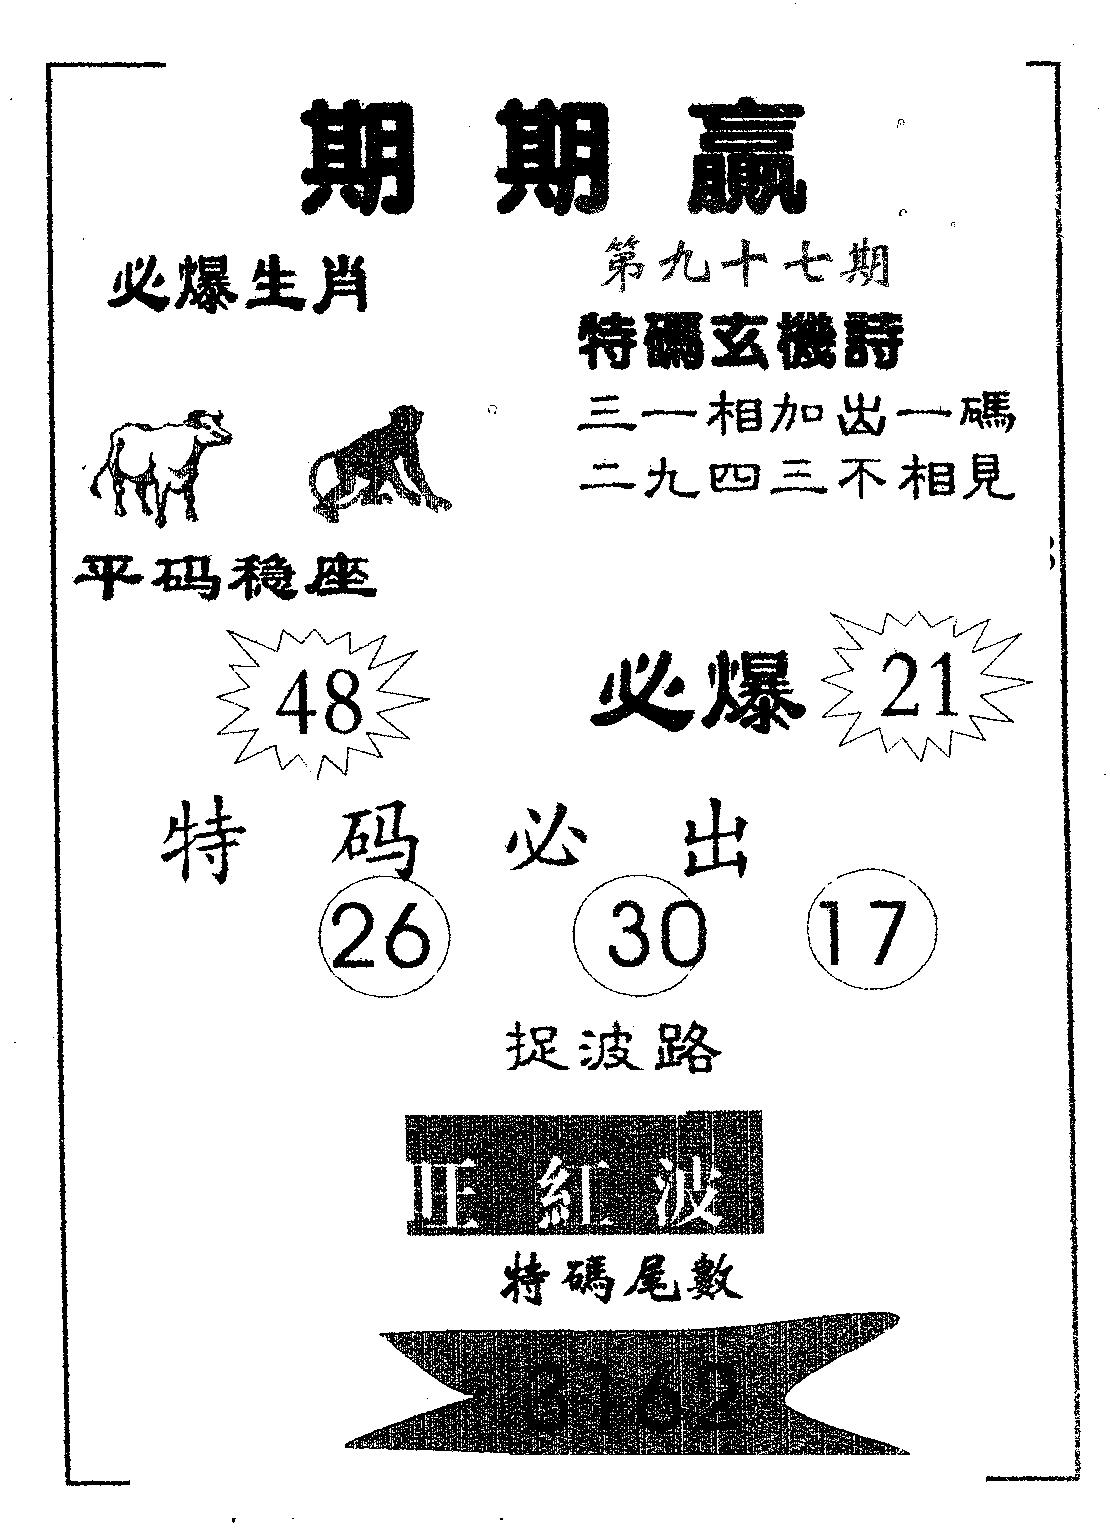 期期赢
必爆生肖
第九十七期
特碼玄機詩
三一相加出一碼
二九四三不相見
平码稳座
48
必爆 21
特码必出
26 30 17
捉波路
旺紅波
特碼尾數